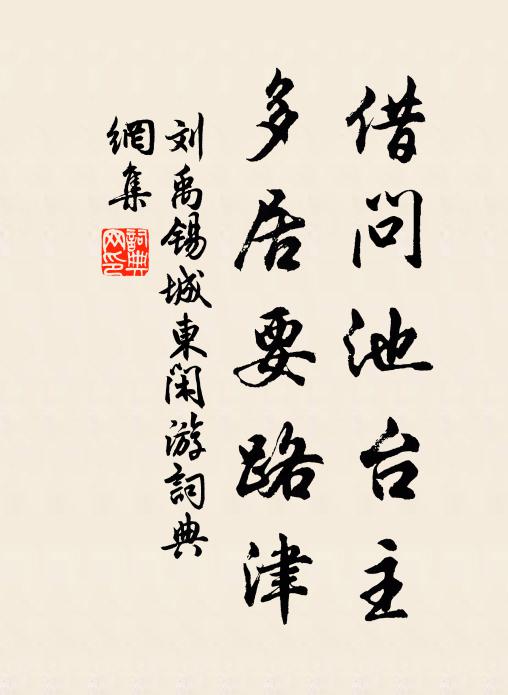 借问池台主
多居要路津
刘禹锡城東闲游詞典
網集
詞典网印